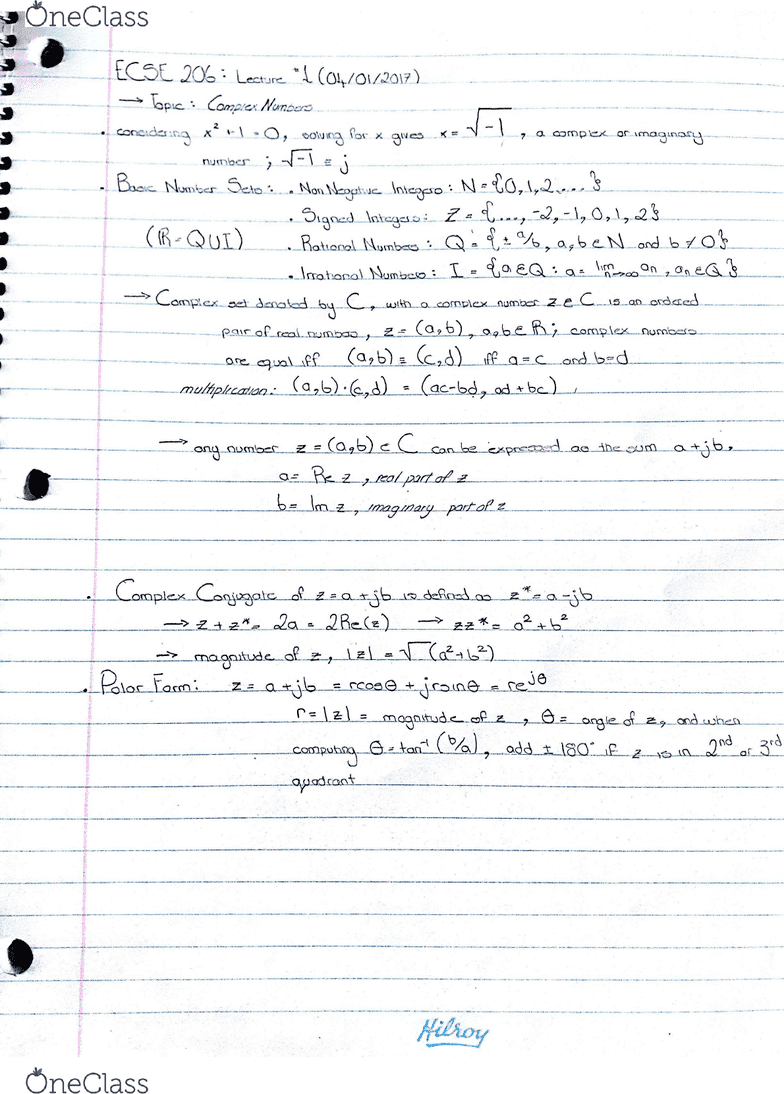 OneClass
ECSE 206: Lecture #1 (04/01/2017)
→ Topic: Complex Numbers
• considering x² + 1 = 0, solving for x gives x = √-1, a complex or imaginary
number; √-1 = j
• Basic Number Sets: • Non Negative Integers: N = {0, 1, 2....}
• Signed Integers: Z = {..., -2, -1, 0, 1, 2}
(R = QUI) • Rational Numbers: Q = {± a/b, a, b ∈ N and b ≠ 0}
• Irrational Numbers: I = {a ∉ Q : a = lim n→∞ an, an ∈ Q}
→ Complex set denoted by C, with a complex number z ∈ C is an ordered
pair of real numbers, z = (a, b), a, b ∈ R; complex numbers
are equal iff (a, b) = (c, d) iff a = c and b = d
multiplication: (a, b)·(c, d) = (ac-bd, ad + bc)
→ any number z = (a, b) ∈ C can be expressed as the sum a + jb,
a = Re z, real part of z
b = Im z, imaginary part of z
• Complex Conjugate of z = a + jb is defined as z* = a - jb
→ z + z* = 2a = 2Re(z) → zz* = a² + b²
→ magnitude of z, |z| = √(a² + b²)
• Polar Form: z = a + jb = rcosθ + jrsinθ = re^jθ
r = |z| = magnitude of z, θ = angle of z, and when
computing θ = tan⁻¹(b/a), add ± 180° if z is in 2nd or 3rd
quadrant
Hilroy
OneClass